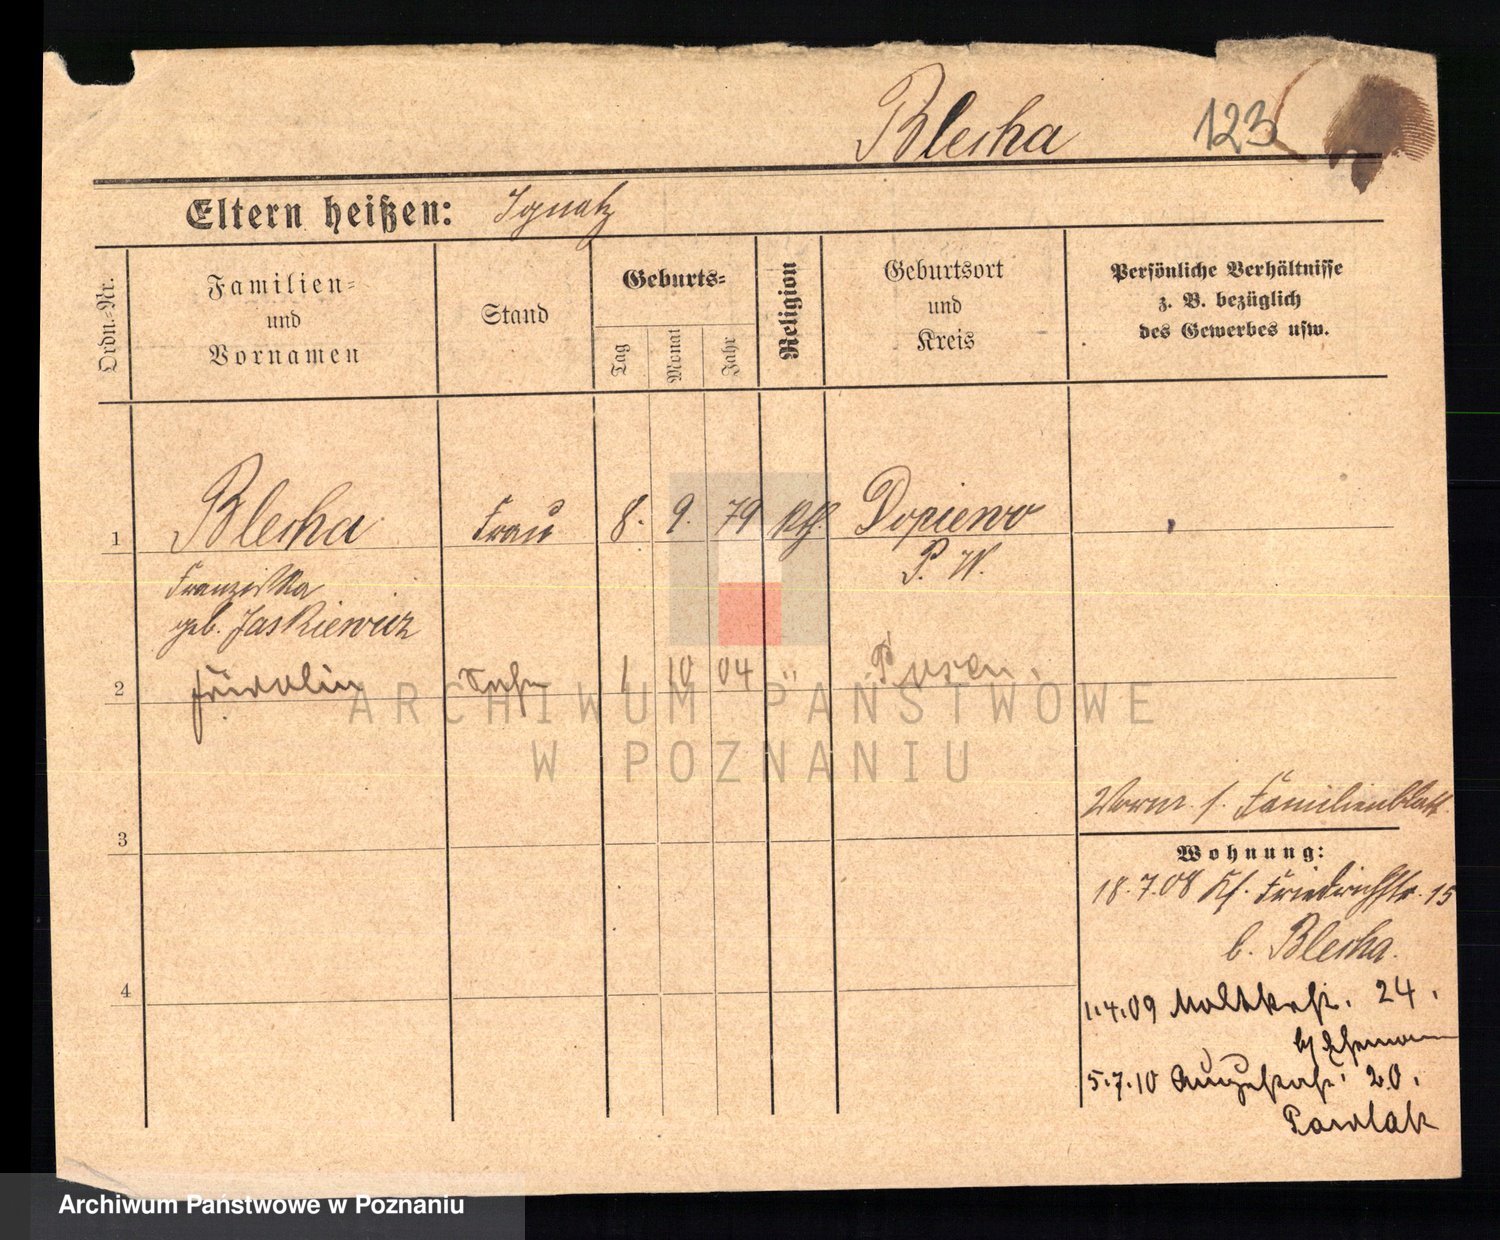 Blecha 123
Eltern heißen: Ignatz
Ordn.=Nr.
Familien=
und
Vornamen
Stand
Geburts=
Tag
Monat
Jahr
Religion
Geburtsort
und
Kreis
Persönliche Verhältnisse
z. B. bezüglich
des Gewerbes usw.
1 Blecha Frau 8. 9. 79 kth Dopiewo
P. W.
Franziska
geb. Jaskiewicz
2 Sohn 1 10 04 " Posen.
3
4
Familienblatt
Wohnung:
18.7.08 Friedrichstr. 15
b. Blecha.
1.4.09 Moltkestr. 24.
b/ Ehemann
5.7.10 20.
Pawlak
ARCHIWUM PAŃSTWOWE
W POZNANIU
Archiwum Państwowe w Poznaniu